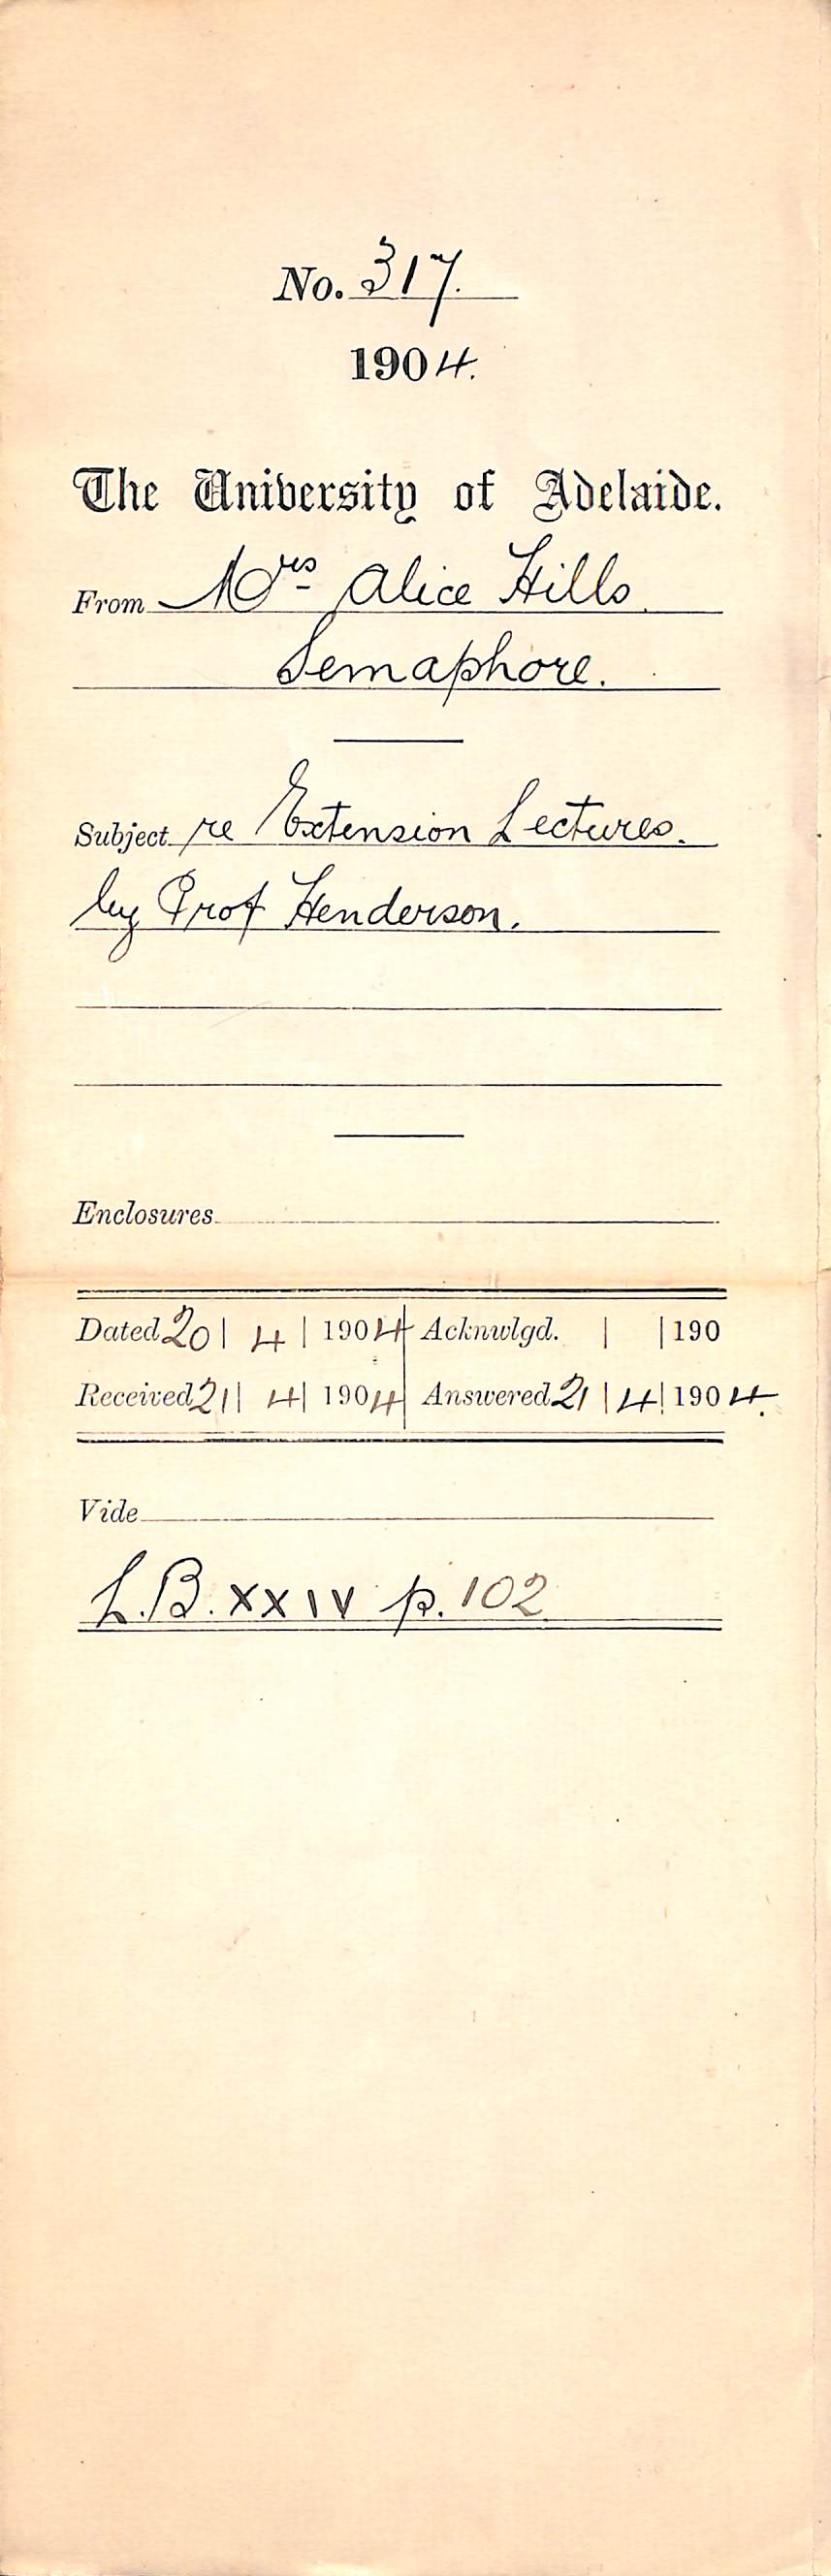 No. 317.
1904.
The University of Adelaide.
From Mrs Alice Hills
Semaphore.
Subject re Extension Lectures.
by Prof Henderson.
Enclosures
Dated 20 | 4 | 1904 Acknwlgd. | | 190
Received 21 | 4 | 1904 Answered 21 | 4 | 1904.
Vide
L.B. XXIV p. 102